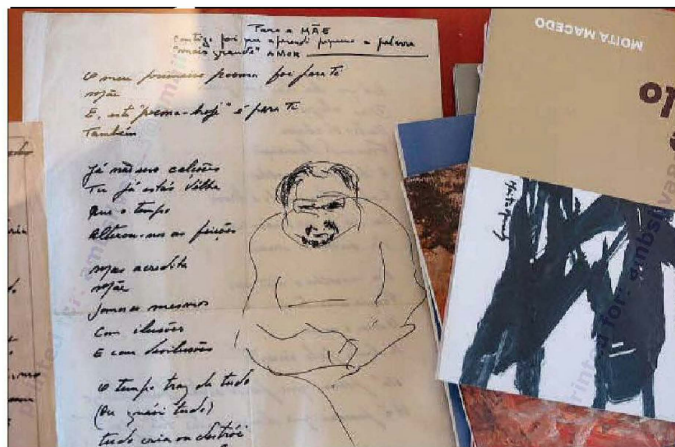 Para a MÃE
contigo foi que aprendi pequeno a palavra
"mais grande" AMOR
O meu primeiro poema foi para ti
Mãe
E, este "poema-hoje" é para ti
Também
Já não uso calções
Tu já estás velha
Que o tempo
Alterou-nos as feições
Mas acredita
Mãe
Somos os mesmos
Com ilusões
E com desilusões
O tempo traz de tudo
(Ou quási tudo)
tudo cria ou destrói
MOITA MACEDO